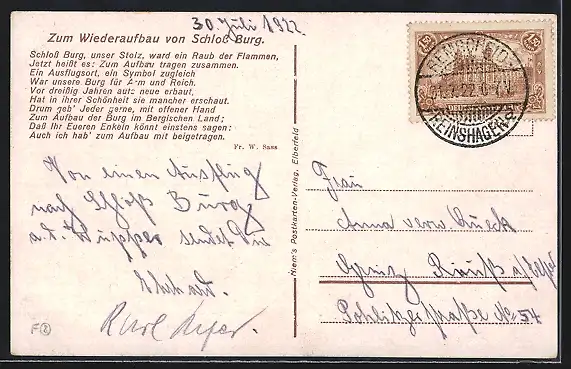 30. Juli 1922.
Zum Wiederaufbau von Schloß Burg.
Schloß Burg, unser Stolz, ward ein Raub der Flammen,
Jetzt heißt es: Zum Aufbau tragen zusammen.
Ein Ausflugsort, ein Symbol zugleich
War unsere Burg für Arm und Reich.
Vor dreißig Jahren aufs neue erbaut,
Hat in ihrer Schönheit sie mancher erschaut.
Drum geb' Jeder gerne, mit offener Hand
Zum Aufbau der Burg im Bergischen Land;
Daß Ihr Eueren Enkeln könnt einstens sagen:
Auch ich hab' zum Aufbau mit beigetragen.
Fr. W. Sass
Von einem Ausflug
nach Schloß Burg
a.d. Wupper sendet Dir
Karl
Niem's Postkarten-Verlag, Elberfeld
Frau
Anna verw.
Greiz
Pohlitzerstraße No 54